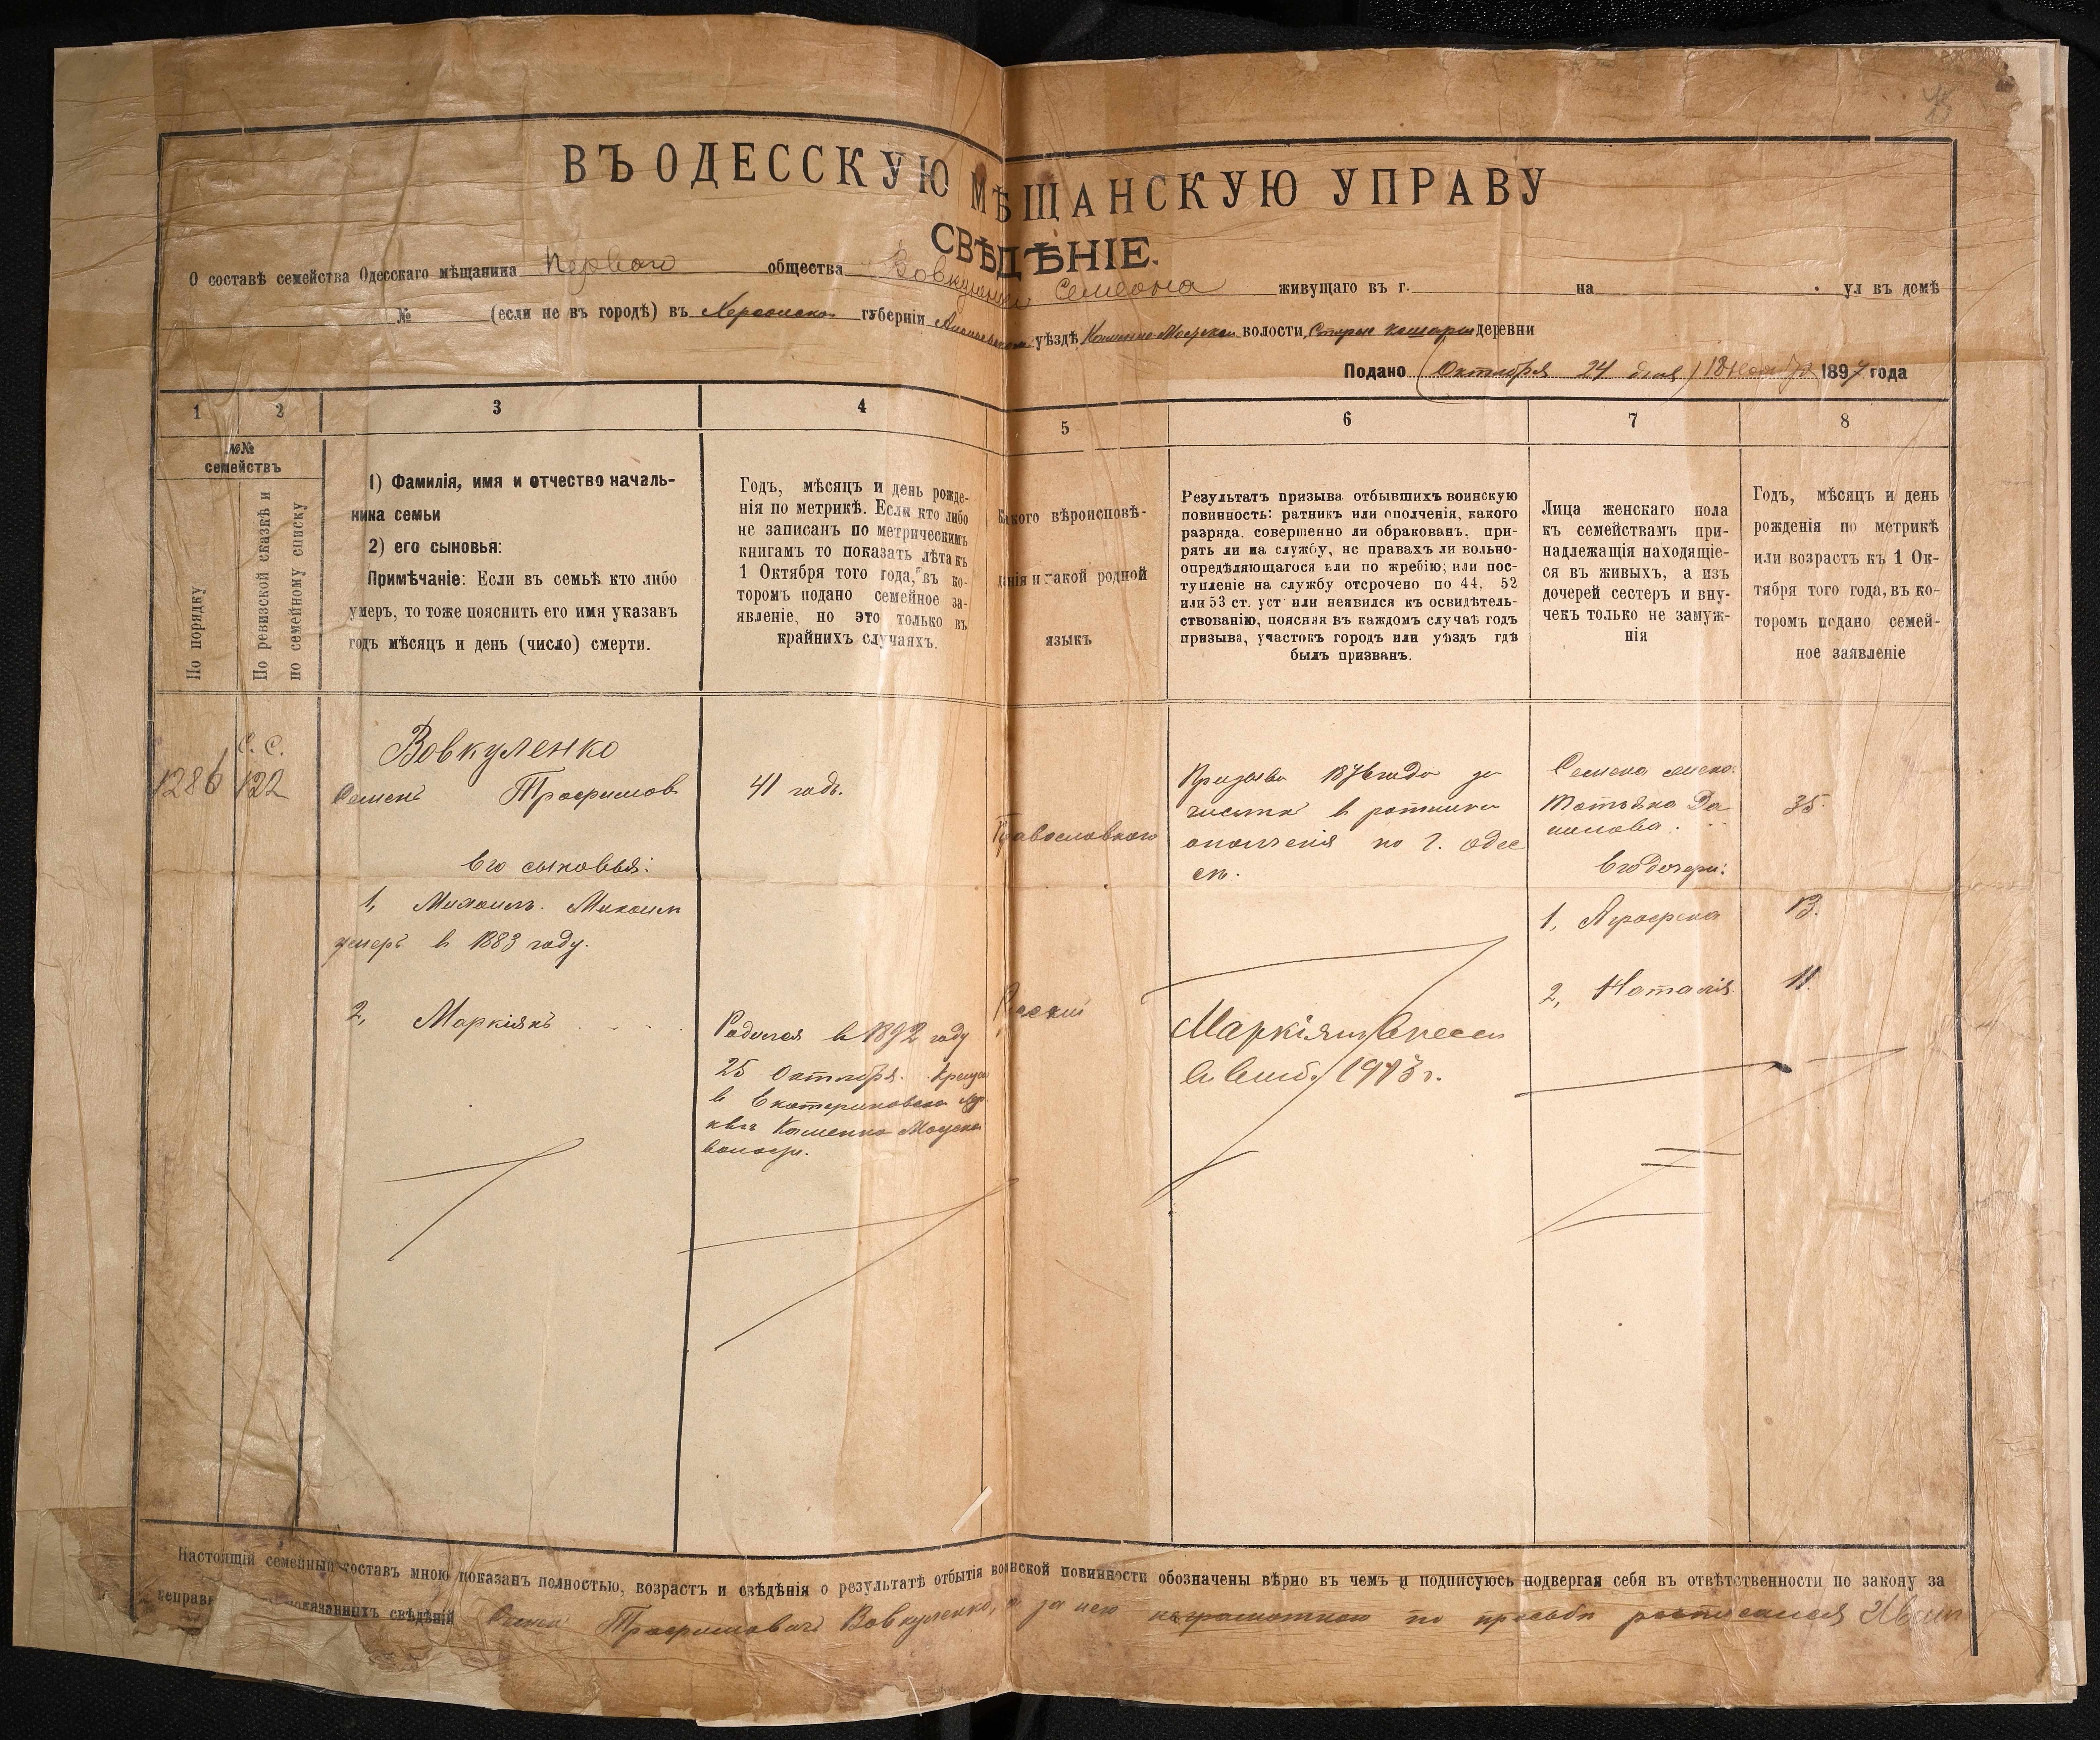 ВЪ ОДЕССКУЮ МѢЩАНСКУЮ УПРАВУ
СВѢДѢНІЕ.
О составѣ семейства Одесскаго мѣщанина Перваго общества Вовкуленка Семена живущаго въ г. на ул въ домѣ
№ (если не въ городѣ) въ Херсонской губерніи Ананьевскомъ уѣздѣ волости, Старые Кошары деревни
Подано Октября 24 дня 1897 года
1 2 3 4 5 6 7 8
№№ семействъ
По порядку
По ревизской сказкѣ и
по семейному списку
1) Фамилія, имя и отчество началь-
ника семьи
2) его сыновья:
Примѣчаніе: Если въ семьѣ кто либо
умеръ, то тоже пояснить его имя указавъ
годъ мѣсяцъ и день (число) смерти.
Годъ, мѣсяцъ и день рожде-
нія по метрикѣ. Если кто либо
не записанъ по метрическимъ
книгамъ то показать лѣта къ
1 Октября того года, въ ко-
торомъ подано семейное за-
явленіе, но это только въ
крайнихъ случаяхъ.
Какого вѣроисповѣ-
данія и какой родной
языкъ
Результатъ призыва отбывшихъ воинскую
повинность: ратникъ или ополченія, какого
разряда. совершенно ли обракованъ, при-
рять ли на службу, нс правахъ ли вольно-
опредѣляющагося или по жребію; или пос-
тупленіе на службу отсрочено по 44, 52
или 53 ст. уст или неявился къ освидѣтель-
ствованію, поясняя въ каждомъ случаѣ годъ
призыва, участокъ городъ или уѣздъ гдѣ
былъ призванъ.
Лица женскаго пола
къ семействамъ при-
надлежащія находящіе-
ся въ живыхъ, а изъ
дочерей сестеръ и вну-
чекъ только не замуж-
нія
Годъ, мѣсяцъ и день
рожденія по метрикѣ
или возрастъ къ 1 Ок-
тября того года, въ ко-
торомъ подано семей-
ное заявленіе
1286
С. С.
122
Вовкуленко
Семенъ Трофимов
Его сыновья:
1, Михаилъ. Михаил
умеръ в 1883 году.
2, Маркіянъ
41 годъ.
Родился в 1892 году
25 Октября. Крещен
в Екатериновской
волости.
Православного
Русский
Призыва 1876 года за
числен в ратники
ополченія по г. Одес
сѣ.
Маркіянъ
1913 г.
Семена
Татьяна Да
нилова.
Его дочери:
1, Агрофена
2, Наталія
35.
13.
11.
Настоящій семейный составъ мною показанъ полностью, возрастъ и свѣдѣнія о результатѣ отбытія воинской повинности обозначены вѣрно въ чемъ и подписуюсь подвергая себя въ отвѣтственности по закону за
неправ показанныхъ свѣдѣній Семен Трофимовичъ Вовкуленко, а за него неграмотного по просьбе росписался Иван